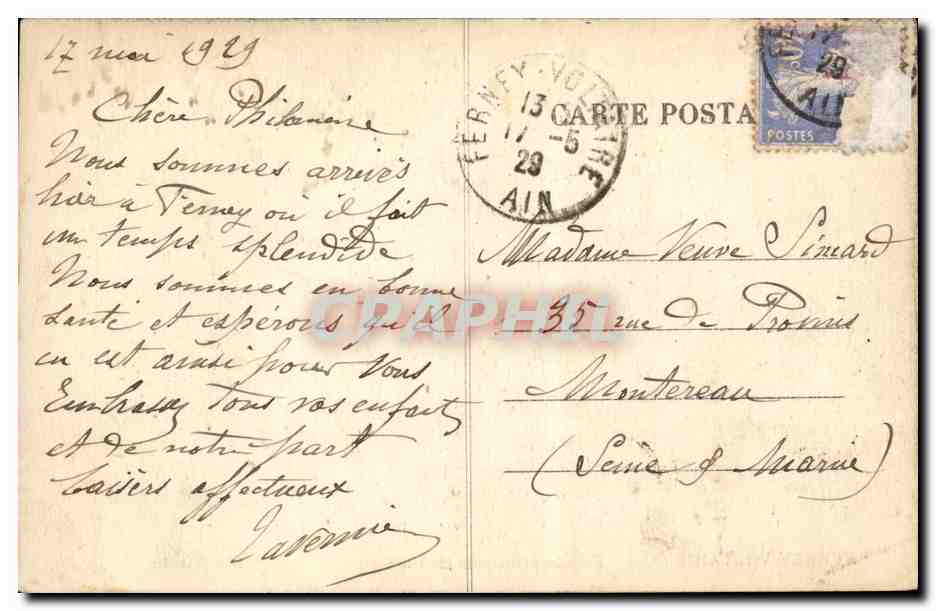 17 mai 1929
Chère Philomène
Nous sommes arrivés
hier à Ferney où il fait
un temps splendide
Nous sommes en bonne
santé et espérons qu'il
en est ainsi pour vous
Embrassez tous vos enfants
et de notre part
baisers affectueux
CARTE POSTA
FERNEY-VOLTAIRE
13
17 -5
29
AIN
17
29
AIN
POSTES
Madame Veuve Simard
35 rue de Provins
Montereau
(Seine & Marne)
CARPHIL